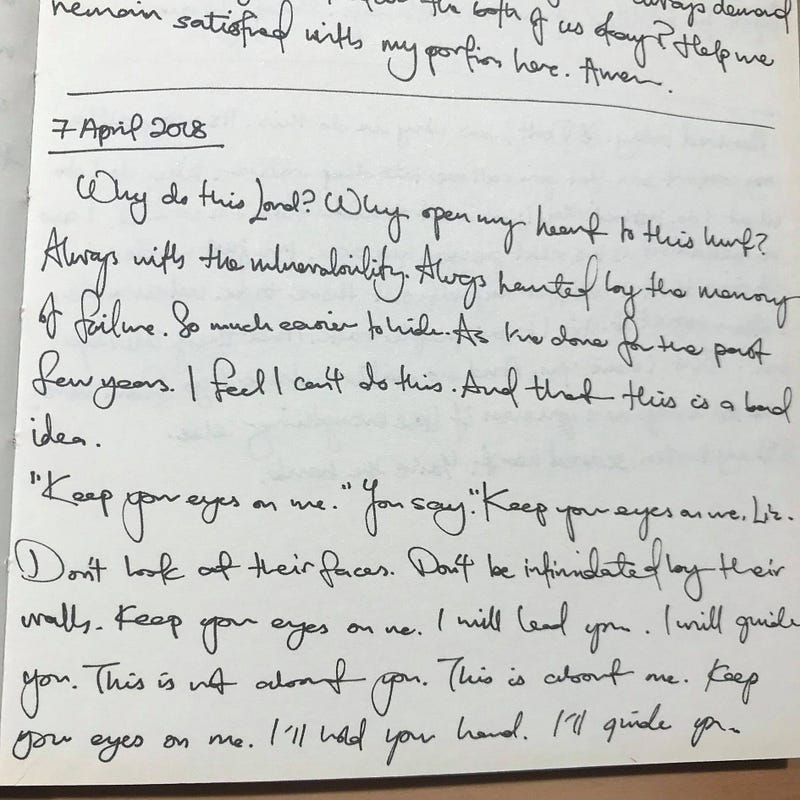 the both of us okay? Help me
remain satisfied with my portion here. Amen.
7 April 2018
Why do this Lord? Why open my heart to this hurt?
Always with the vulnerability. Always haunted by the memory
of failure. So much easier to hide. As I've done for the past
few years. I feel I can't do this. And that this is a bad
idea.
"Keep your eyes on me." You say. "Keep your eyes on me, Liz.
Don't look at their faces. Don't be intimidated by their
walls. Keep your eyes on me. I will lead you. I will guide
you. This is not about you. This is about me. Keep
your eyes on me. I'll hold your hand. I'll guide you.